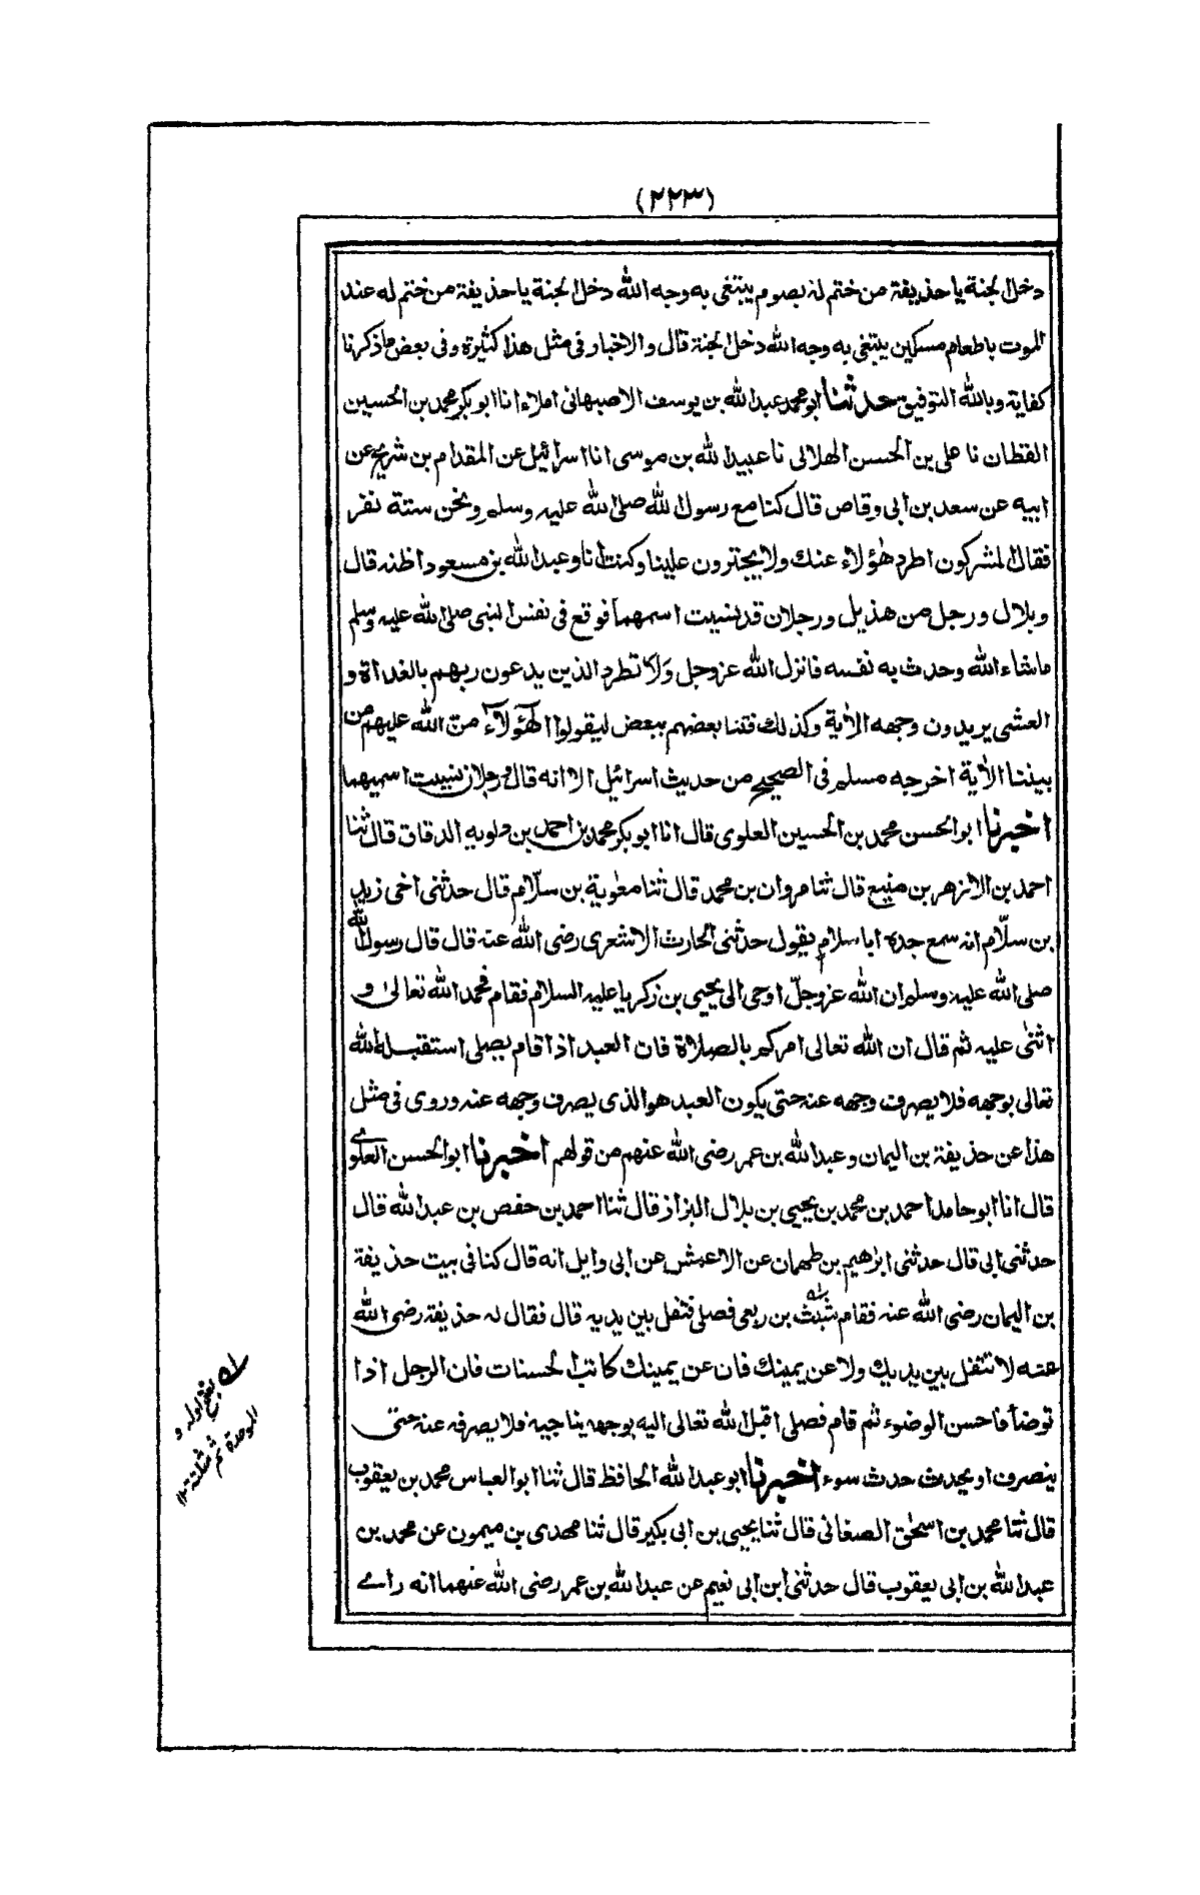 (٢٢٣)
دخل الجنة يا حذيفة من ختم له بصوم يبتغى به وجه الله دخل الجنة يا حذيفة من ختم له عند
الموت باطعام مسكين يبتغى به وجه الله دخل الجنة قال والاخبار فى مثل هذا كثيرة وفى بعض ما ذكرنا
كفاية وبالله التوفيق حدثنا ابو محمد عبد الله بن يوسف الاصبهانى املاء انا ابو بكر محمد بن الحسين
القطان نا على بن الحسن الهلالى نا عبيد الله بن موسى انا اسرائيل عن المقدام بن شريح عن
ابيه عن سعد بن ابى وقاص قال كنا مع رسول الله صلى الله عليه وسلم ونحن ستة نفر
فقال المشركون اطرد هؤلاء عنك ولا يجترون علينا وكنت انا وعبد الله بن مسعود اظنه قال
وبلال ورجل من هذيل ورجلان قد نسيت اسمهما فوقع فى نفس النبى صلى الله عليه وسلم
ما شاء الله وحدث به نفسه فانزل الله عز وجل ولا تطرد الذين يدعون ربهم بالغداة و
العشى يريدون وجهه الآية وكذلك فتنا بعضهم ببعض ليقولوا اهؤلاء من الله عليهم من
بيننا الآية اخرجه مسلم فى الصحيح من حديث اسرائيل الا انه قال ورجلان نسيت اسميهما
اخبرنا ابو الحسن محمد بن الحسين العلوى قال انا ابو بكر محمد بن احمد بن دلويه الدقاق قال ثنا
احمد بن الازهر بن منيع قال ثنا مروان بن محمد قال ثنا معوية بن سلّام قال حدثنى اخى زيد
بن سلّام انه سمع جده ابا سلام يقول حدثنى الحارث الاشعرى رضى الله عنه قال قال رسول الله
صلى الله عليه وسلم ان الله عز وجلّ اوحى الى يحيى بن زكريا عليه السلام فقام فحمد الله تعالى و
اثنى عليه ثم قال ان الله تعالى امركم بالصلاة فان العبد اذا قام يصلى استقبله الله
تعالى بوجهه فلا يصرف وجهه عنه حتى يكون العبد هو الذى يصرف وجهه عنه وروى فى مثل
هذا عن حذيفة بن اليمان وعبد الله بن عمر رضى الله عنهم من قولهم اخبرنا ابو الحسن العلوى
قال انا ابو حامد احمد بن محمد بن يحيى بن بلال البزاز قال ثنا احمد بن حفص بن عبد الله قال
حدثنى ابى قال حدثنى ابرٰهيم بن طهمان عن الاعمش عن ابى وايل انه قال كنا فى بيت حذيفة
بن اليمان رضى الله عنه فقام شبث بن ربعى فصلى فتفل بين يديه قال فقال له حذيفة رضى الله
عنه لا تتفل بين يديك ولا عن يمينك فان عن يمينك كاتب الحسنات فان الرجل اذا
توضأ فاحسن الوضوء ثم قام فصلى اقبل الله تعالى اليه بوجهه يناجيه فلا يصرفه عنه حتى
ينصرف او يحدث حدث سوء اخبرنا ابو عبد الله الحافظ قال ثنا ابو العباس محمد بن يعقوب
قال ثنا محمد بن اسحٰق الصغانى قال ثنا يحيى بن ابى بكير قال ثنا مهدى بن ميمون عن محمد بن
عبد الله بن ابى يعقوب قال حدثنى ابن ابى نعيم عن عبد الله بن عمر رضى الله عنهما انه راى
بفتح اوله و
الموحدة ثم مثلثة ١٢